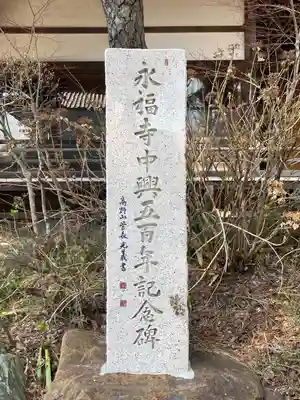 永福寺中興五百年記念碑
高野山管長光義書